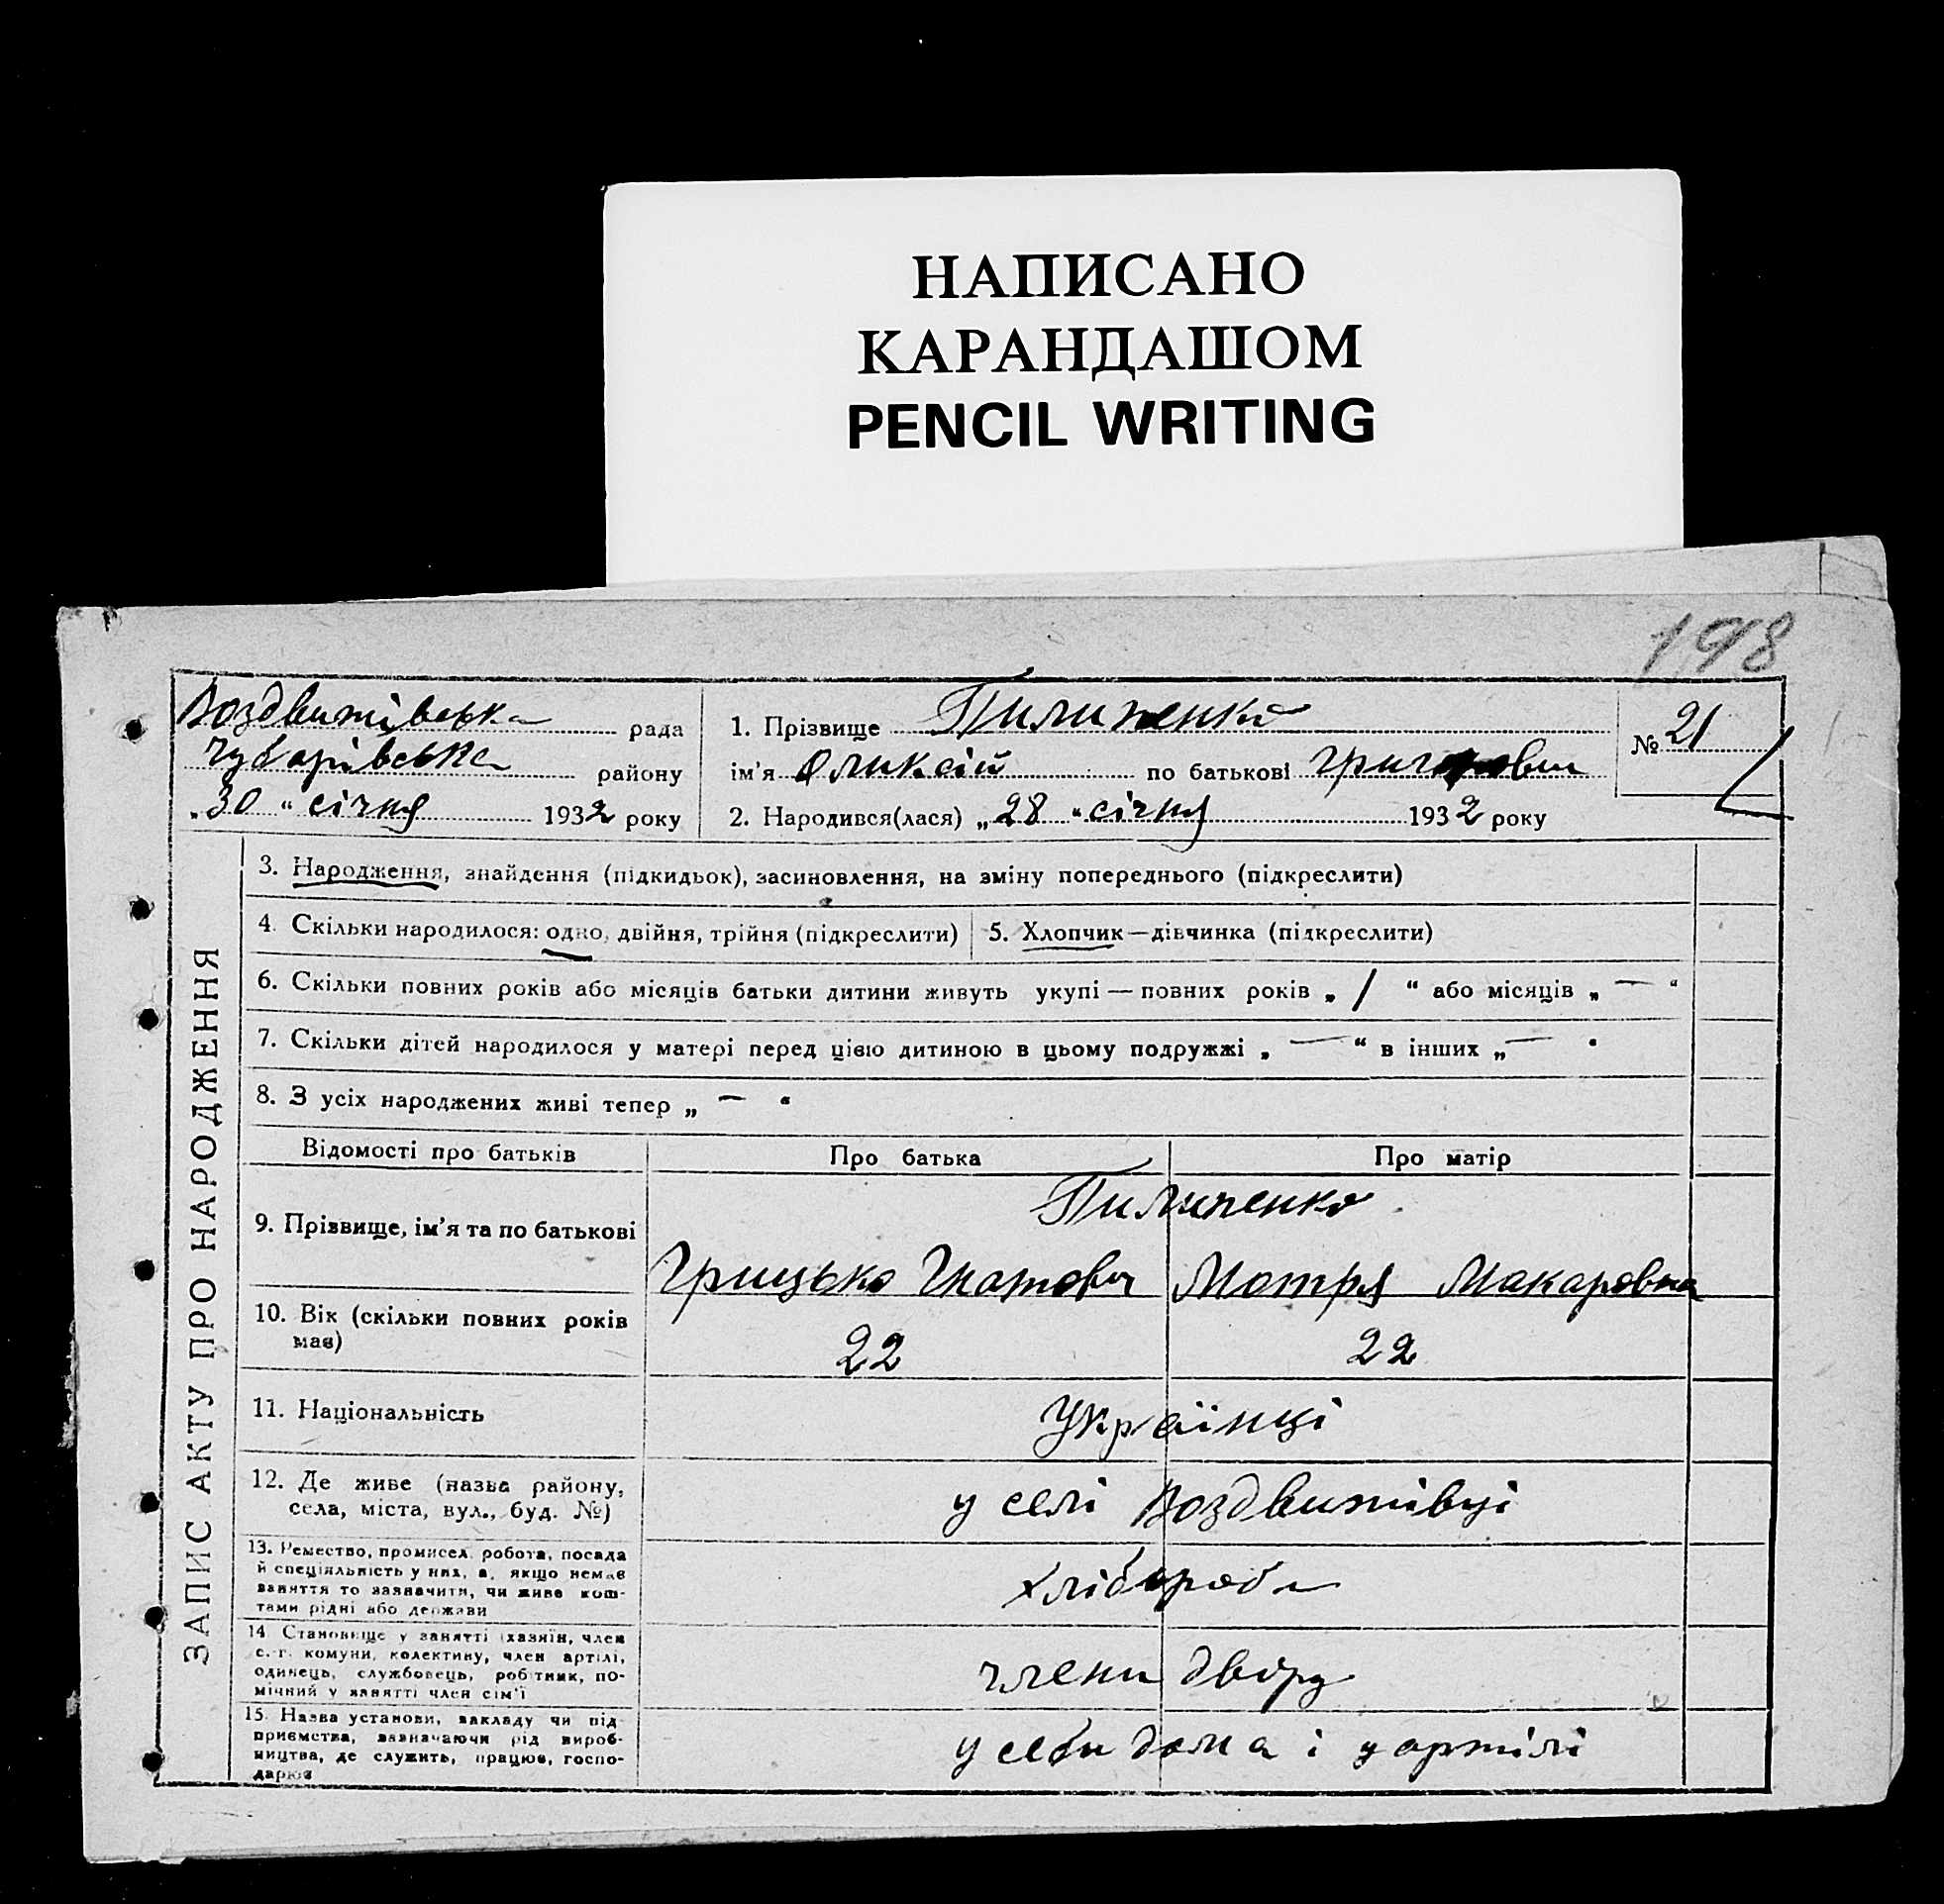 НАПИСАНО
КАРАНДАШОМ
PENCIL WRITING
198
Воздвижівська рада
Чубарівська району
„30“ січня 1932 року
1. Прізвище Пилипенко
ім'я Оликсій по батькові Григорович
2. Народився(лася) „28“ січня 1932 року
№ 21
ЗАПИС АКТУ ПРО НАРОДЖЕННЯ
3. Народження, знайдення (підкидьок), засиновлення, на зміну попереднього (підкреслити)
4. Скільки народилося: одно, двійня, трійня (підкреслити) 5. Хлопчик—дівчинка (підкреслити)
6. Скільки повних років або місяців батьки дитини живуть укупі — повних років „ 1 “ або місяців „ — “
7. Скільки дітей народилося у матері перед цією дитиною в цьому подружжі „ — “ в інших „ — “
8. З усіх народжених живі тепер „ — “
Відомості про батьків Про батька Про матір
9. Прізвище, ім'я та по батькові
Пилипенко
Грицько Гнатович Мотря Макаровна
10. Вік (скільки повних років
має)
22 22
11. Національність Українці
12. Де живе (назва району,
села, міста, вул., буд. №)
у селі Воздвижівці
13. Ремество, промисел, робота, посада
й спеціяльність у них, а, якщо немає
заняття то зазначити, чи живе кош-
тами рідні або держави
хлібороби
14. Становище у занятті (хазяїн, член
с.-г. комуни, колективу, член артілі,
одинець, службовець, робітник, по-
мічний у занятті член сім'ї
члени двору
15. Назва установи, закладу чи під-
приємства, зазначаючи рід вироб-
ництва, де служить, працює, госпо-
дарює
у себи дома і у артілі